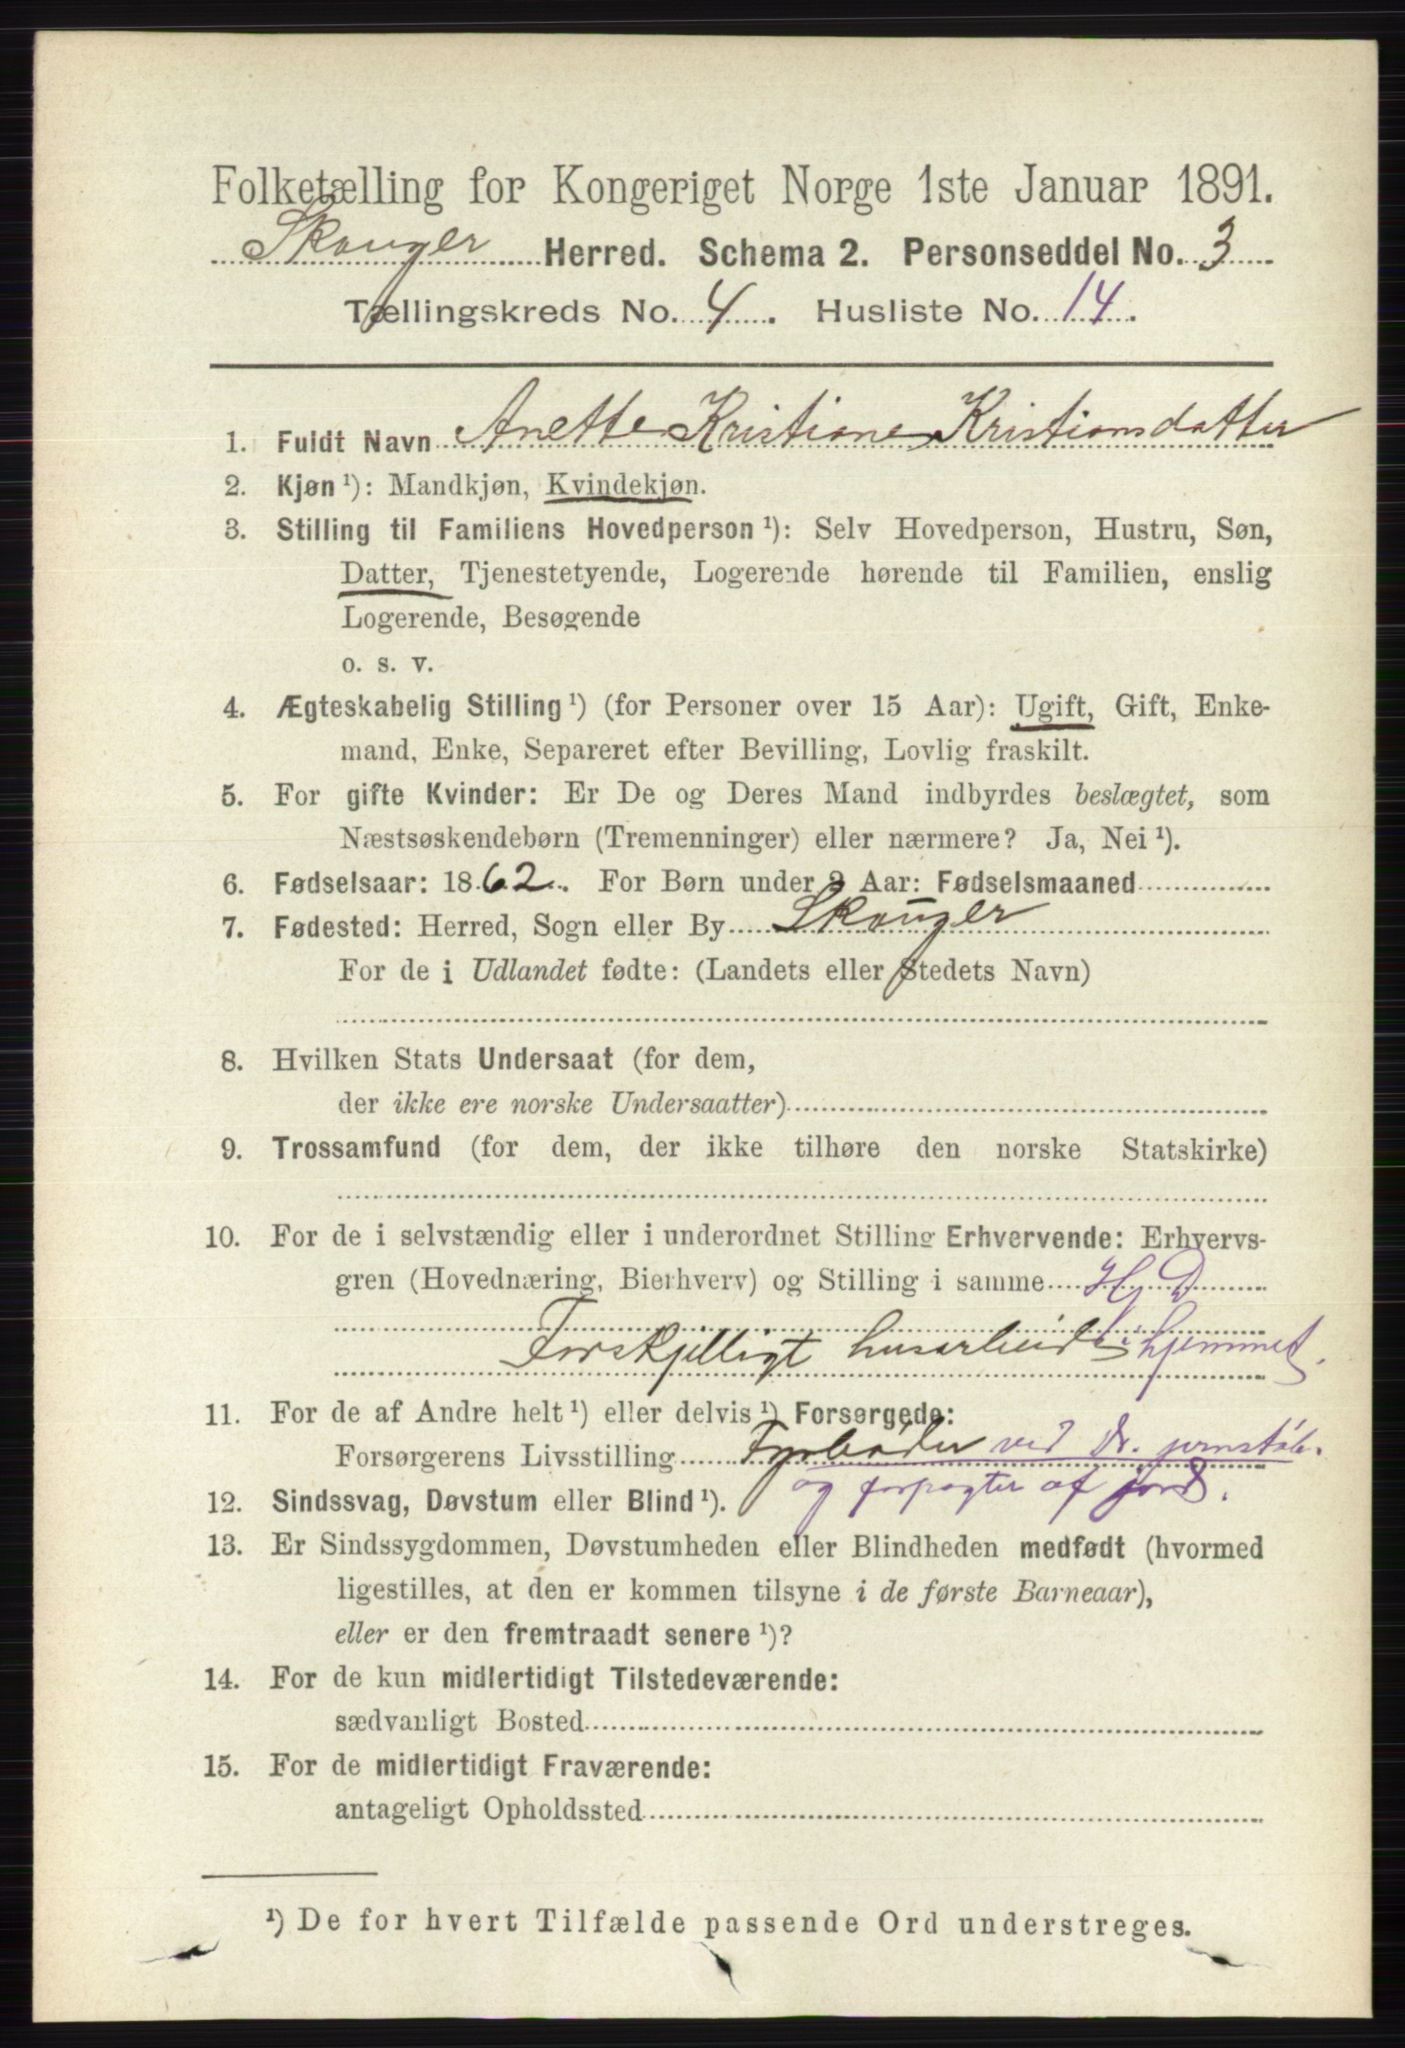 Folketælling for Kongeriget Norge 1ste Januar 1891.
Skouger Herred. Schema 2. Personseddel No. 3
Tællingskreds No. 4. Husliste No. 14.
1. Fuldt Navn Anette Kristiane Kristiansdatter
2. Kjøn ¹): Mandkjøn, Kvindekjøn.
3. Stilling til Familiens Hovedperson ¹): Selv Hovedperson, Hustru, Søn,
Datter, Tjenestetyende, Logerende hørende til Familien, enslig
Logerende, Besøgende
o. s. v.
4. Ægteskabelig Stilling ¹) (for Personer over 15 Aar): Ugift, Gift, Enke-
mand, Enke, Separeret efter Bevilling, Lovlig fraskilt.
5. For gifte Kvinder: Er De og Deres Mand indbyrdes beslægtet, som
Næstsøskendebørn (Tremenninger) eller nærmere? Ja, Nei ¹).
6. Fødselsaar: 1862. For Børn under 2 Aar: Fødselsmaaned
7. Fødested: Herred, Sogn eller By Skouger
For de i Udlandet fødte: (Landets eller Stedets Navn)
8. Hvilken Stats Undersaat (for dem,
der ikke ere norske Undersaatter)
9. Trossamfund (for dem, der ikke tilhøre den norske Statskirke)
10. For de i selvstændig eller i underordnet Stilling Erhvervende: Erhvervs-
gren (Hovednæring, Bierhverv) og Stilling i samme Hj D
Forskjelligt husarbeide i hjemmet.
11. For de af Andre helt ¹) eller delvis ¹) Forsørgede:
Forsørgerens Livsstilling Fyrbøder ved Dr. jernstøb.
og forpagter af jord.
12. Sindssvag, Døvstum eller Blind ¹).
13. Er Sindssygdommen, Døvstumheden eller Blindheden medfødt (hvormed
ligestilles, at den er kommen tilsyne i de første Barneaar),
eller er den fremtraadt senere ¹)?
14. For de kun midlertidigt Tilstedeværende:
sædvanligt Bosted
15. For de midlertidigt Fraværende:
antageligt Opholdssted
¹) De for hvert Tilfælde passende Ord understreges.